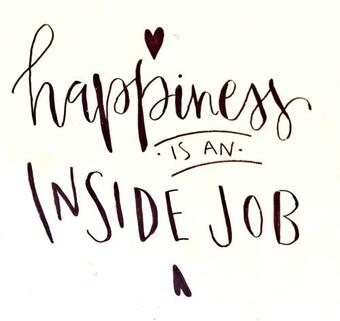 happiness
·IS AN·
INSIDE JOB